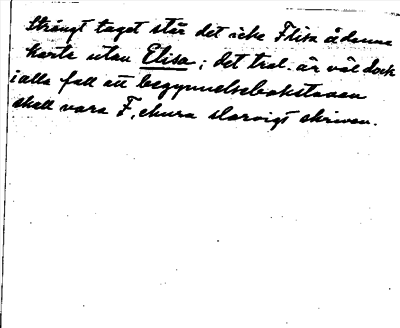 Strängt taget står det icke Flisa å denna
karta utan Elisa; det tral. är väl dock
i alla fall att begynnelsebokstaven
skall vara F, ehuru slarvigt skriven.